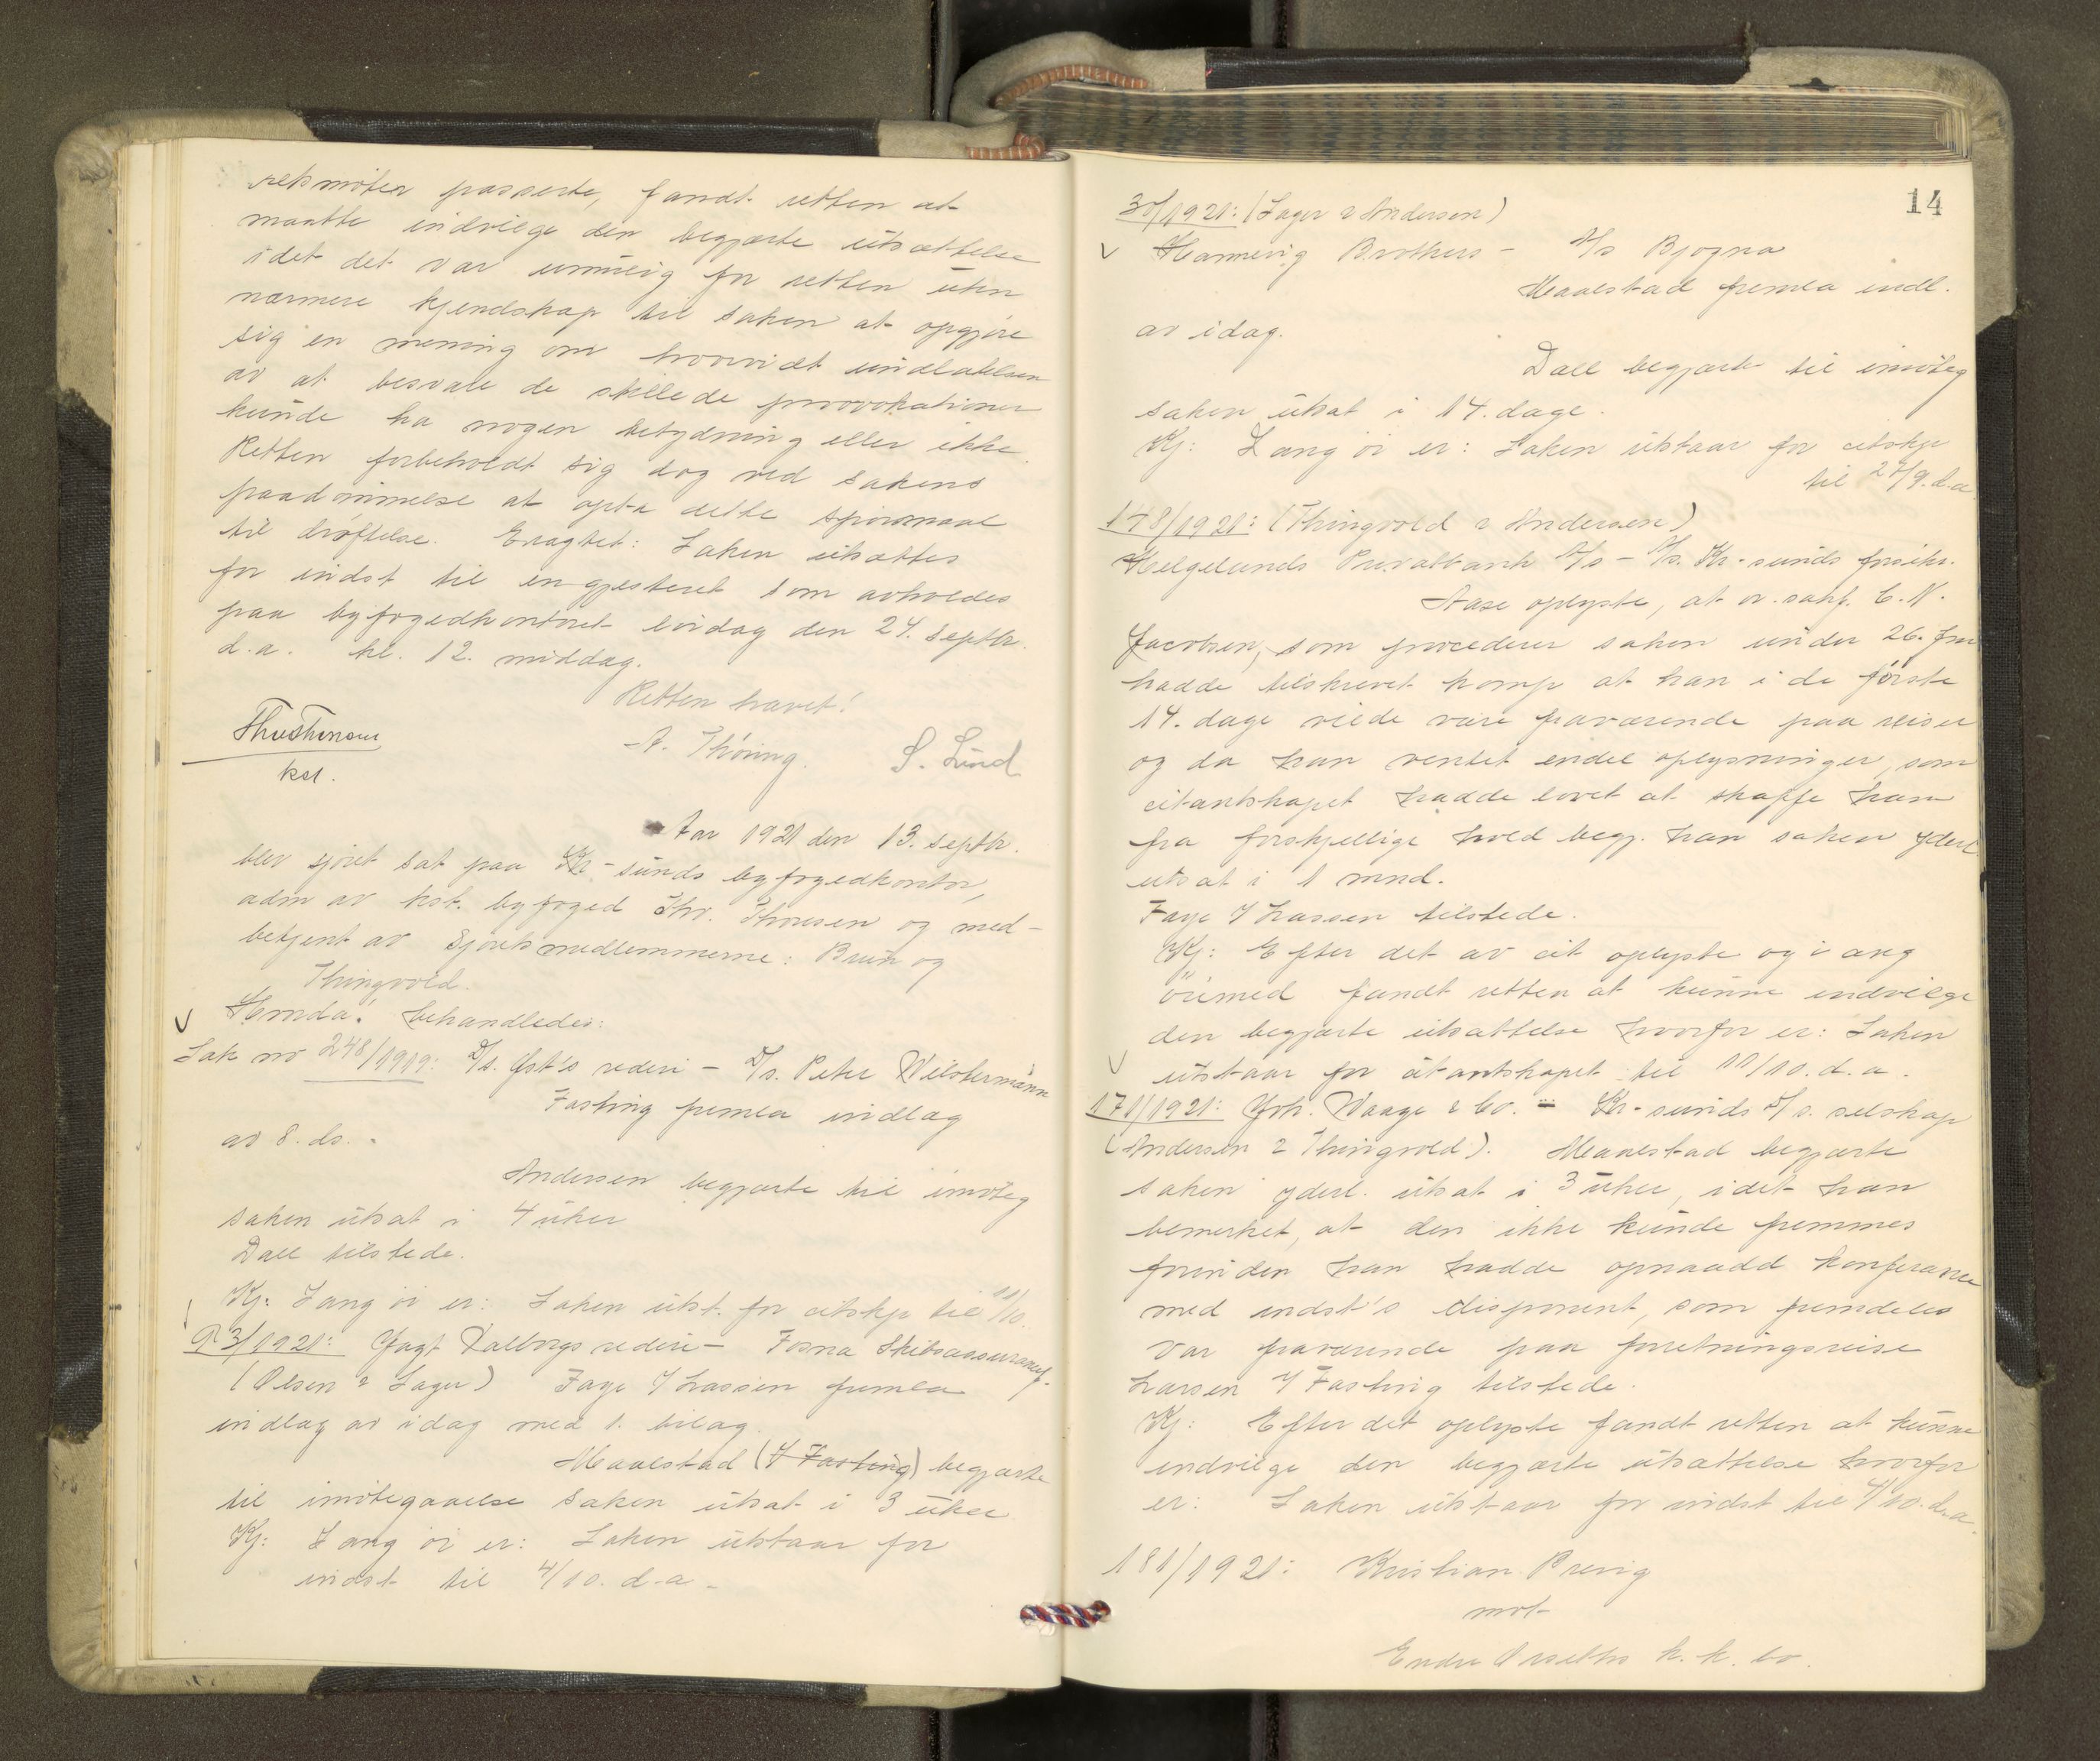 retsmöter passerte, fandt retten at
maatte indvilge den begjærte utsættelse
idet det var umulig for retten uten
nærmere kjendskap til saken at opgjöre
sig en mening om hvorvidt undlatelsen
av at besvare de stillede provokationer
kunde ha nogen betydning eller ikke.
Retten forbeholdt sig dog ved sakens
paadömmelse at opta dette spörsmaal
til dröftelse. Eragtet: Saken utsættes
for indst til en gjesteret som avholdes
paa byfogedkontoret lördag den 24. septbr.
d.a. kl. 12. middag.
Retten hævet!
A. Thöring. S. Lund
kst.
Aar 1921 den 13. septbr.
blev sjöret sat paa Kr-sunds byfogedkontor,
adm av kst. byfoged Chr. Thoresen og med-
betjent av Sjöretsmedlemmerne: Bruun og
Thingvold.
Hvorda! behandledes:
Sak no 248/1919: D/s. Yst's rederi - D/s. Peter Wilstermann
Fasting fremla indlæg
av 8. ds. -
Andersen begjærte til imöteg
saken utsat i 4 uker
Dall tilstede.
Kj: I ang öi er: Saken utst. for citskp til 11/10.
93/1921: Jagt Valborgs rederi - Fosna Skibsassuransef.
(Olsen & Lager) Faye f/ Lassen fremla
indlæg av idag med 1. bilag.
Maalstad (f/ Fasting) begjærte
til imötegaaelse saken utsat i 3 uker
Kj: I ang öi er: Saken utstaar for
indst til 4/10. d.a -
14
30/1921: (Lager & Andersen)
Hannevig Brothers - A/s Bjogna
Maalstad fremla indl.
av idag.
Dall begjærte til imöteg
saken utsat i 14. dage.
Kj: I ang öi er: Saken utstaar for citskp
til 27/9. d.a.
148/1921: (Thingvold & Andersen)
Helgelands Privatbank A/s - A/s. Kr-sunds forsikr.
Aase oplyste, at o.r.sakf. C. N.
Jacobsen, som procederer saken under 26. fm
hadde tilskrevet komp at han i de förste
14. dage vilde være fraværende paa reiser
og da han ventet endel oplysninger, som
citantskapet hadde lovet at skaffe ham
fra forskjellige hold begj. han saken yderl
utsat i 1 mnd.
Faye f/ Lassen tilstede.
Kj: Efter det av cit oplyste og i ang
öiemed fandt retten at kunne indvilge
den begjærte utsættelse hvorfor er: Saken
utstaar for citantskapet til 11/10. d.a.
171/1921: Joh. Waage & Co. - Kr-sunds D/s. selskap
(Andersen & Thingvold). Maalstad begjærte
saken yderl. utsat i 3 uker, idet han
bemerket, at den ikke kunde fremmes
forinden han hadde opnaadd konferanse
med indst's disponent, som fremdeles
var fraværende paa forretningsreise
Larsen f/ Fasting tilstede.
Kj: Efter det oplyste fandt retten at kunne
indvilge den begjærte utsættelse hvorfor
er: Saken utstaar for indst til 4/10. d.a.
181/1921: Kristian Prerig
mot
k. k. bo.